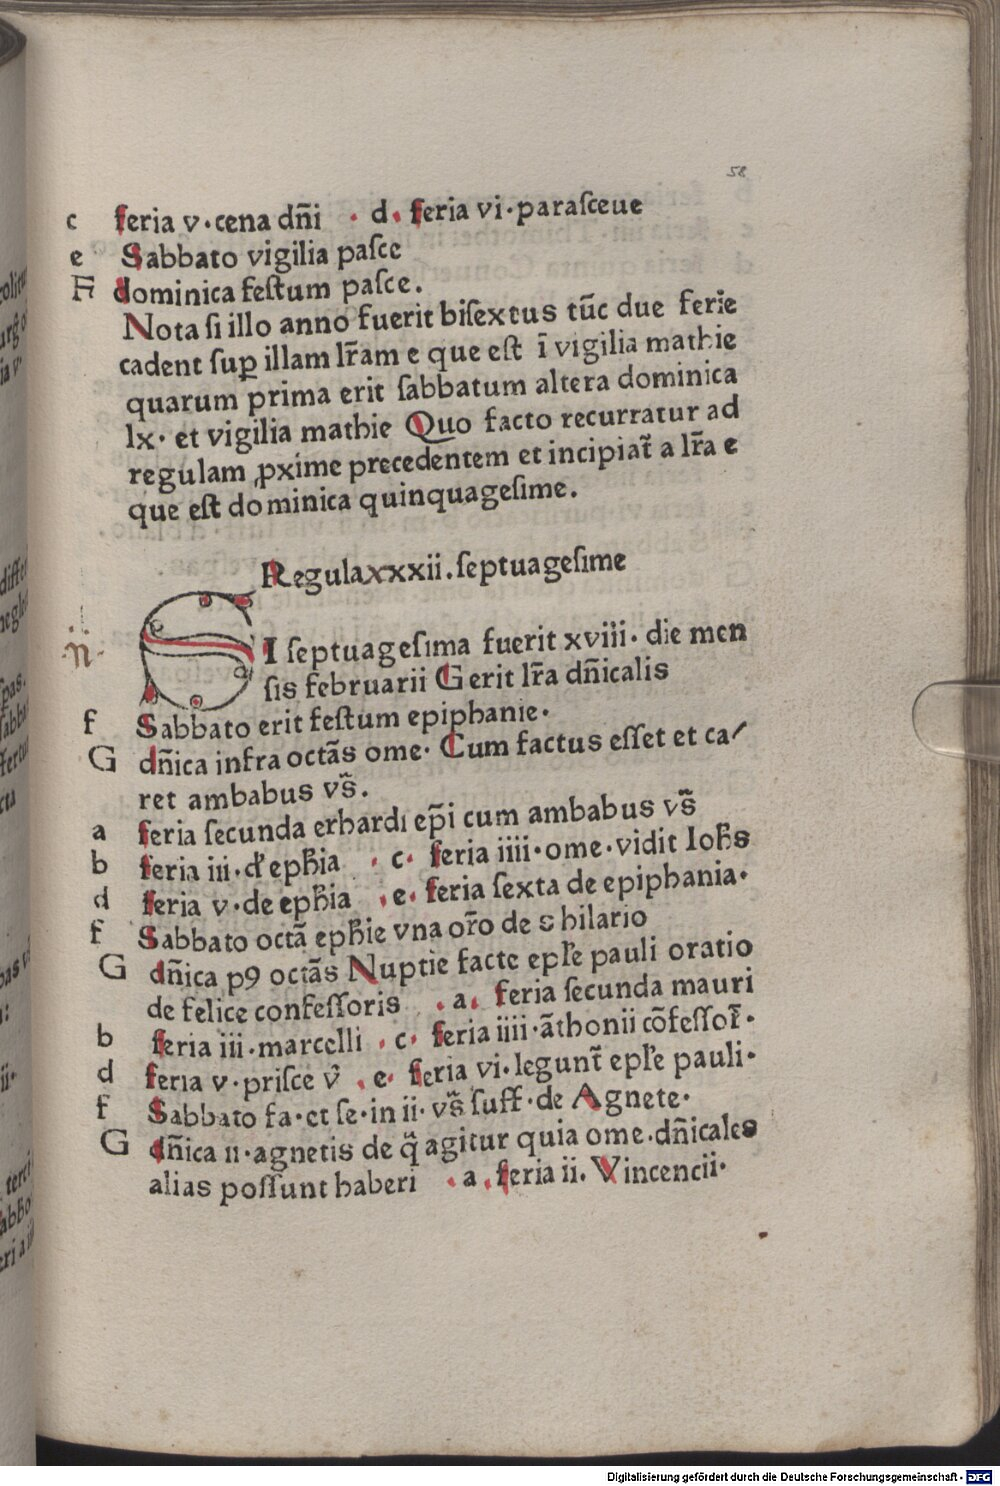 58
c feria v·cena dn̄i · d· feria vi·parasceue
e Sabbato vigilia pasce
A dominica festum pasce.
Nota si illo anno fuerit bisextus tūc due ferie
cadent suꝑ illam lr̄am e que est ī vigilia mathie
quarum prima erit sabbatum altera dominica
lx· et vigilia mathie Quo facto recurratur ad
regulam ꝓxime precedentem et incipiat̄ a lr̄a e
que est dominica quinquagesime.
Regula xxxii. septuagesime
SI septuagesima fuerit xviii· die men
sis februarii G erit lr̄a dn̄icalis
f Sabbato erit festum epiphanie·
G dn̄ica infra octās ome· Cum factus esset et ca/
ret ambabus vs̄.
a feria secunda erhardi ep̄i cum ambabus vs̄
b feria iii·d' eph̄ia · c· feria iiii·ome·vidit Ioh̄s
d feria v·de eph̄ia ·e· feria sexta de epiphania·
f Sabbato octā eph̄ie vna or̄o de s hilario
G dn̄ica p9 octās Nuptie facte epl̄e pauli oratio
de felice confessoris ·a· feria secunda mauri
b feria iii·marcelli ·c· feria iiii·āthonii cōfessor̄·
d feria v·prisce v̄ ·e· feria vi·legunt̄ epl̄e pauli·
f Sabbato fa·et se·in ii·vs̄ suff·de Agnete·
G dn̄ica ii·agnetis de q̄ agitur quia ome·dn̄icales
alias possunt haberi ·a· feria ii. Vincencii·
Digitalisierung gefördert durch die Deutsche Forschungsgemeinschaft - DFG